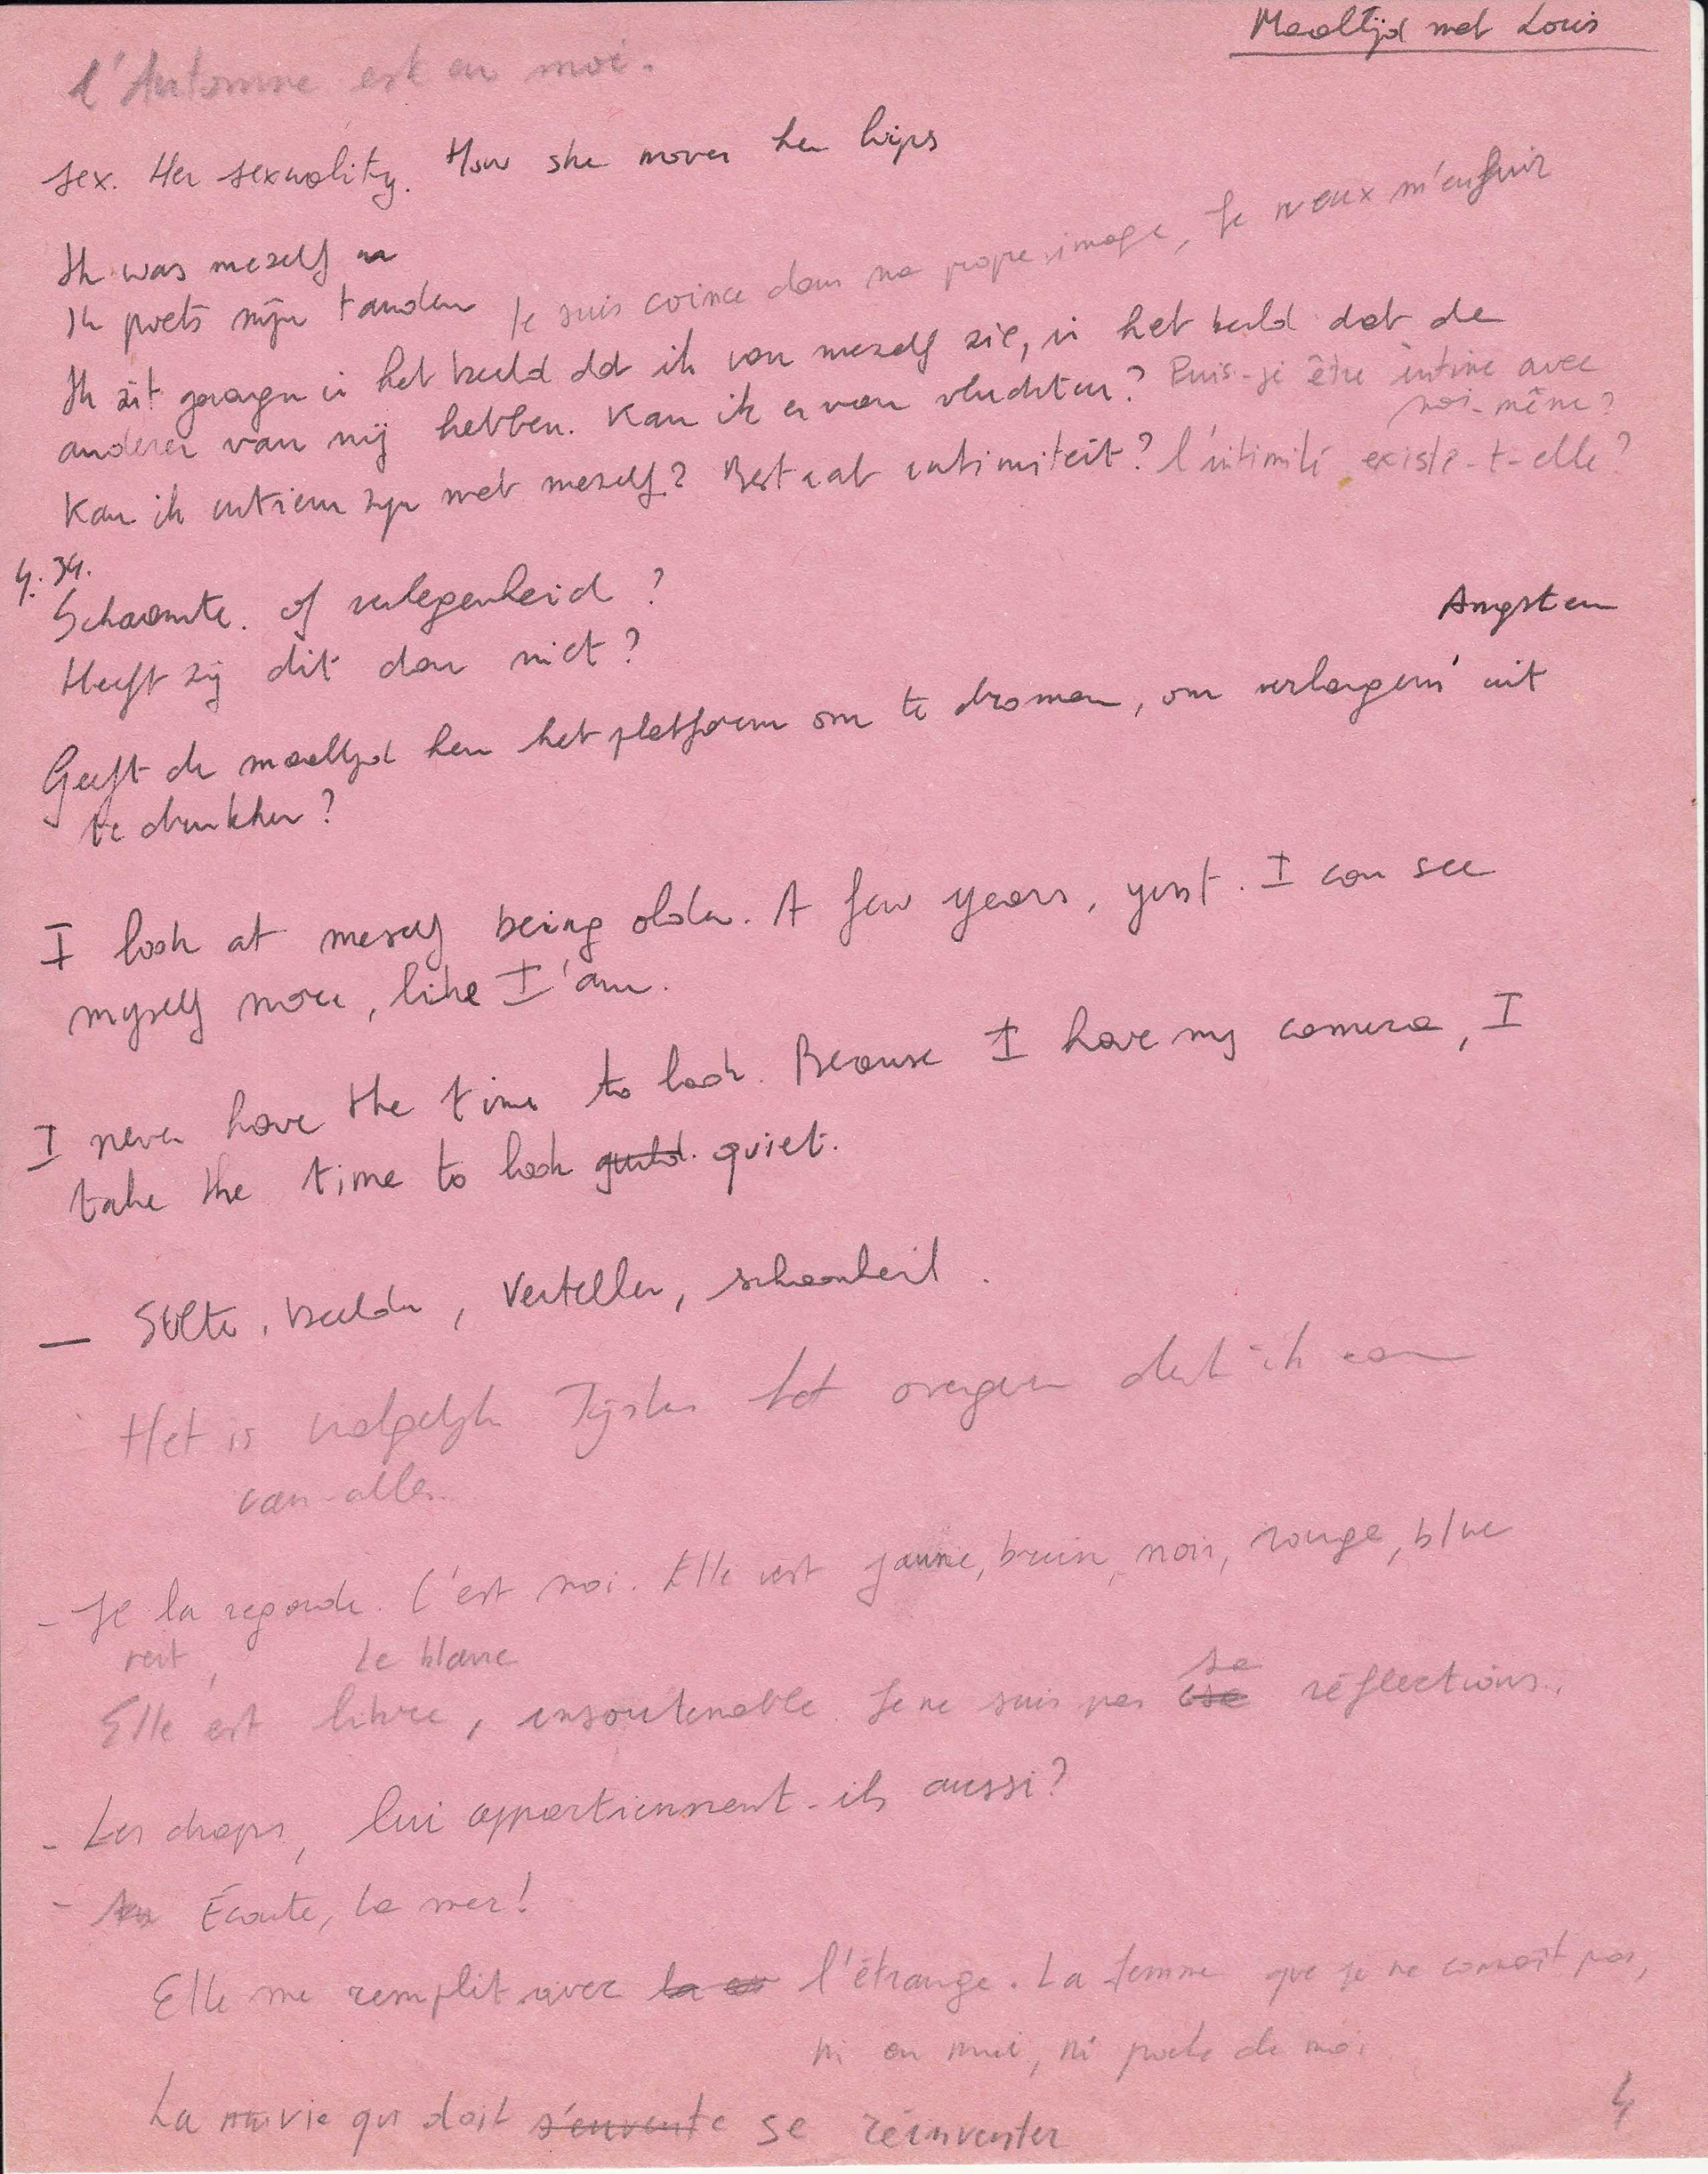 Maaltijd met Louis
l'Automne est en moi.
Sex. Her sexuality. How she moves her hips
Ik was mezelf
Ik poets mijn tanden Je suis coince dans ma propre image, Je veux m'enfuir
Ik zit gevangen in het beeld dat ik van mezelf zie, in het beeld dat de
anderen van mij hebben. Kan ik ervan vluchten? Puis-je être intime avec
moi-même?
Kan ik intiem zijn met mezelf? Bestaat intimiteit? l'intimité existe-t-elle?
4.34.
Schaamte. of verlegenheid?
Angsten
Heeft zij dit dan niet?
Geeft de maaltijd hen het platform om te dromen, om verlangens uit
te drukken?
I look at meself being older. A few years, yust. I can see
myself more, like I'am.
I never have the time to look. Because I have my camera, I
take the time to look quiet.
— Stilte, beelden, Verteller, schoonheid.
Het is tot dat ik
van alles.
- Je la regarde. C'est moi. Elle est jaune, bruin, noir, rouge, blue
Le blanc
Elle est libre, insoutenable. Je ne suis pas sa réflections.
- Les draps, lui appartiennent-ils aussi?
- Écoute, la mer!
Elle me remplit avec l'étrange. La femme que je ne connaît pas,
ni en moi, ni de moi
La vie qui doit s'envente se réinventer
4